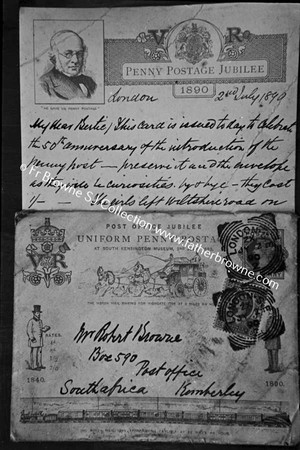 V R
PENNY POSTAGE JUBILEE
1890
"HE GAVE US PENNY POSTAGE"
London 2nd July 1890
My dear Bertie / This card is issued to day to celebrate
the 50th anniversary of the introduction of the
penny post — preserve it and the envelope
as they will be curiosities. by & bye — they cost
1/- — The girls left Wiltshire road on
© Fr Browne S.J. Collection
www.fatherbrowne.com
POST OFFICE JUBILEE
UNIFORM PENNY POSTAGE
AT SOUTH KENSINGTON MUSEUM,
V R
LONDON
Mr Robert Browne
Box 590
Post office
South Africa Kimberley
RATES.
1840.
1890.